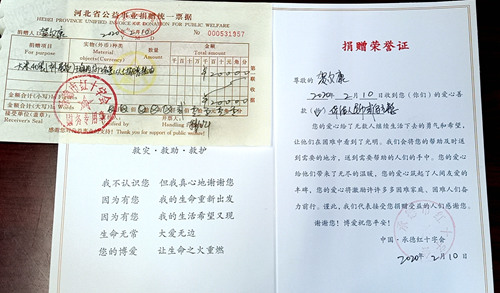 河北省公益事业捐赠统一票据
HEBEI PROVINCE UNIFIED INVOICE OF DONATION FOR PUBLIC WELFARE
捐赠人
Donor
2020年2月10日
№ 000531957
捐赠项目
For purpose
实物(外币)种类
Material objects(Currency)
数量
Amount
金额
Total amount
千百十万千百十元角分
金额合计(小写)
金额合计(大写)
接受单位(盖章)
Receiver's Seal
Handling
感谢您对公益事业的支持! Thank you for support of public welfare!
承德市红十字会
财务专用章
救灾·救助·救护
我不认识您 但我真心地谢谢您
因为有您 我的生命重新出发
因为有您 我的生活希望又现
生命无常 大爱无边
您的博爱 让生命之火重燃
捐赠荣誉证
尊敬的
2020年2月10日收到您(你们)的爱心善
款(物)
您的爱心给了无数人继续生活下去的勇气和希望,
让他们在困难中看到了光明。我们会将您的帮助及时送
到需要的地方,送到需要帮助的人们的手中。您的爱心
给他们带来了无尽的温暖,您的爱心筑起了人间友爱的
丰碑,您的爱心将激励许许多多困难家庭、困难人们奋
力前行。谨此,我们代表接受您捐赠受益的人们感谢您。
谢谢您!博爱祝您平安!
中国·承德红十字会
2020年2月10日